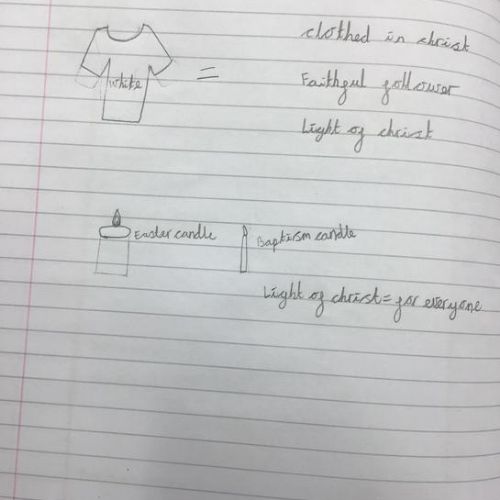 clothed in christ
white
=
Faithful follower
Light of christ
Easter candle
Baptism candle
Light of christ = for everyone